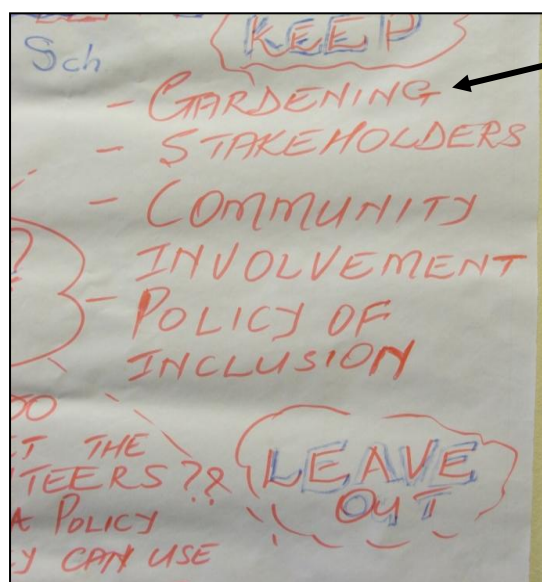 KEEP
Sch
- GARDENING
- STAKEHOLDERS
- COMMUNITY
INVOLVEMENT
- POLICY OF
INCLUSION
?
DO
ET THE
TEERS ??
A POLICY
Y CAN USE
LEAVE
OUT